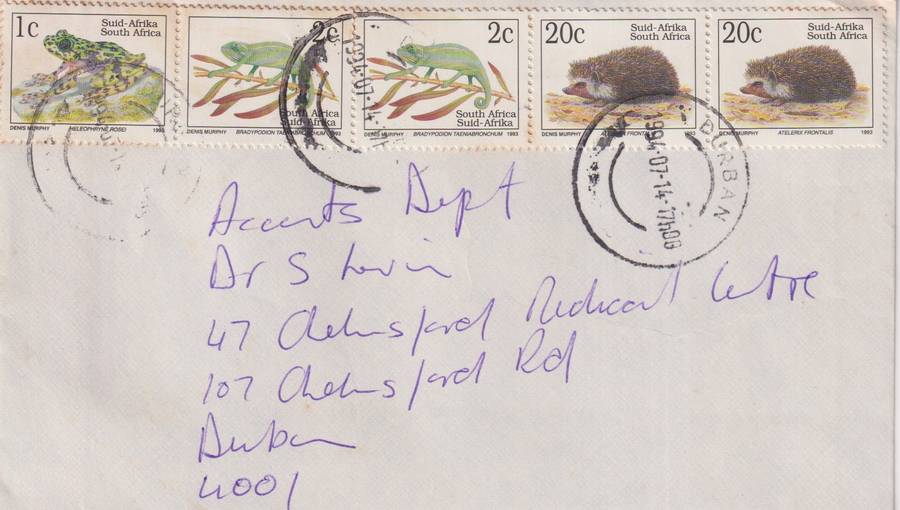 1c
Suid-Afrika
South Africa
DENIS MURPHY HELEOPHRYNE ROSEI 1993
2c
South Afrika
Suid-Afrika
DENIS MURPHY BRADYPODION TAENIABRONCHUM 1993
2c
South Africa
Suid-Afrika
DENIS MURPHY BRADYPODION TAENIABRONCHUM 1993
20c
Suid-Afrika
South Africa
DENIS MURPHY ATELERIX FRONTALIS 1993
20c
Suid-Afrika
South Africa
DENIS MURPHY ATELERIX FRONTALIS 1993
DURBAN
1994-07-14-17H00
Accounts Dept
Dr S Levin
47 Chelmsford Medical Centre
107 Chelmsford Rd
Durban
4001